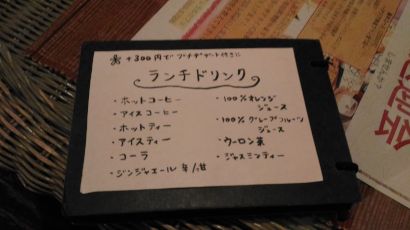 ❀ +300円で プチデザート付きに
ランチドリンク
・ホットコーヒー
・アイスコーヒー
・ホットティー
・アイスティー
・コーラ
・ジンジャエール 辛/甘
・100%オレンジ
ジュース
・100%グレープフルーツ
ジュース
・ウーロン茶
・ジャスミンティー
迎会